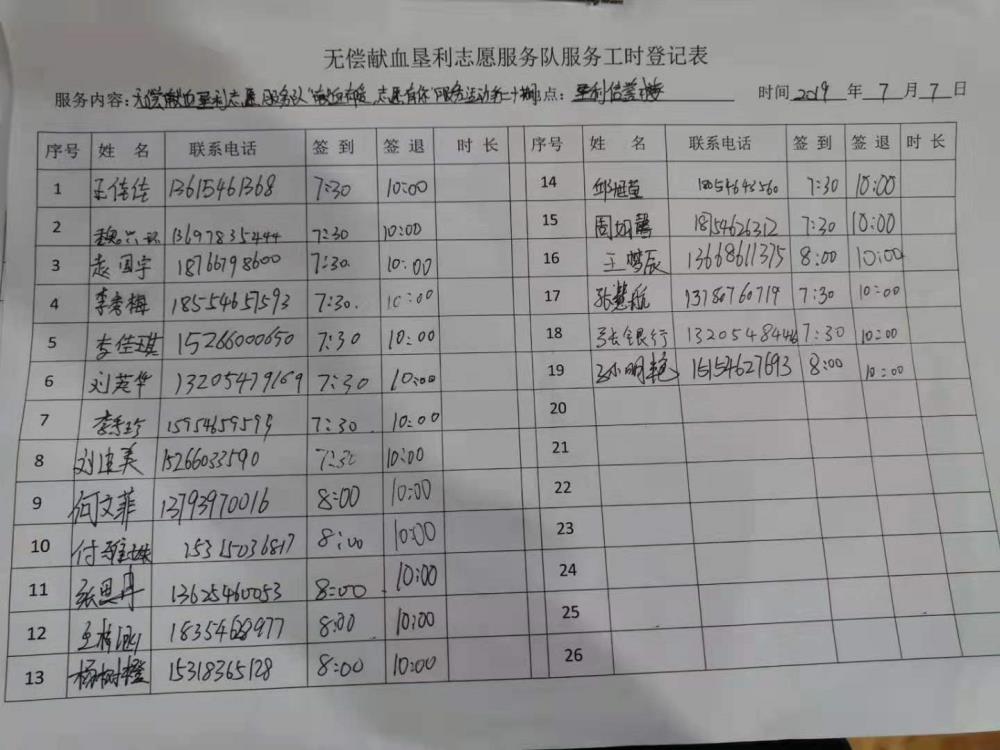 无偿献血垦利志愿服务队服务工时登记表
服务内容:无偿献血垦利志愿服务队 志愿有你 服务活动 点: 垦利 时间 2019 年 7 月 7 日
序号 姓 名 联系电话 签 到 签 退 时 长 序号 姓 名 联系电话 签 到 签 退 时 长
1 王佳佳 13615461368 7:30 10:00 14 邱旭莹 18054643560 7:30 10:00
2 魏 13697835444 7:30 10:00 15 周如馨 18154626312 7:30 10:00
3 袁国宇 18766798600 7:30. 10:00 16 王梦辰 13668611375 8:00 10:00
4 李秀梅 18554657593 7:30. 10:00 17 张慧航 13780760719 7:30 10:00
5 李佳琪 15266000650 7:30 10:00 18 张银行 7:30 10:00
6 刘英华 13205479169 7:30 10:00 19 孙明艳 15154627693 8:00 10:00
7 李秀珍 15954659599 7:30 10:00 20
8 刘建美 15266033590 7:30 10:00 21
9 何文菲 13793970016 8:00 10:00 22
10 付 15315036817 8:00 10:00 23
11 张思丹 13625460053 8:00 10:00 24
12 王梓涵 18354628977 8:00 10:00 25
13 杨树橙 15318365128 8:00 10:00 26